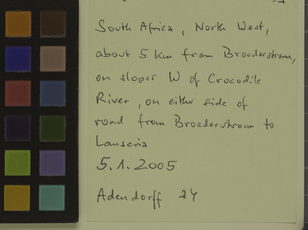 South Africa, North West,
about 5 km from Broederstroom,
on slopes W of Crocodile
River, on either side of
road from Broederstroom to
Lanseria
5.1.2005
Adendorff 34